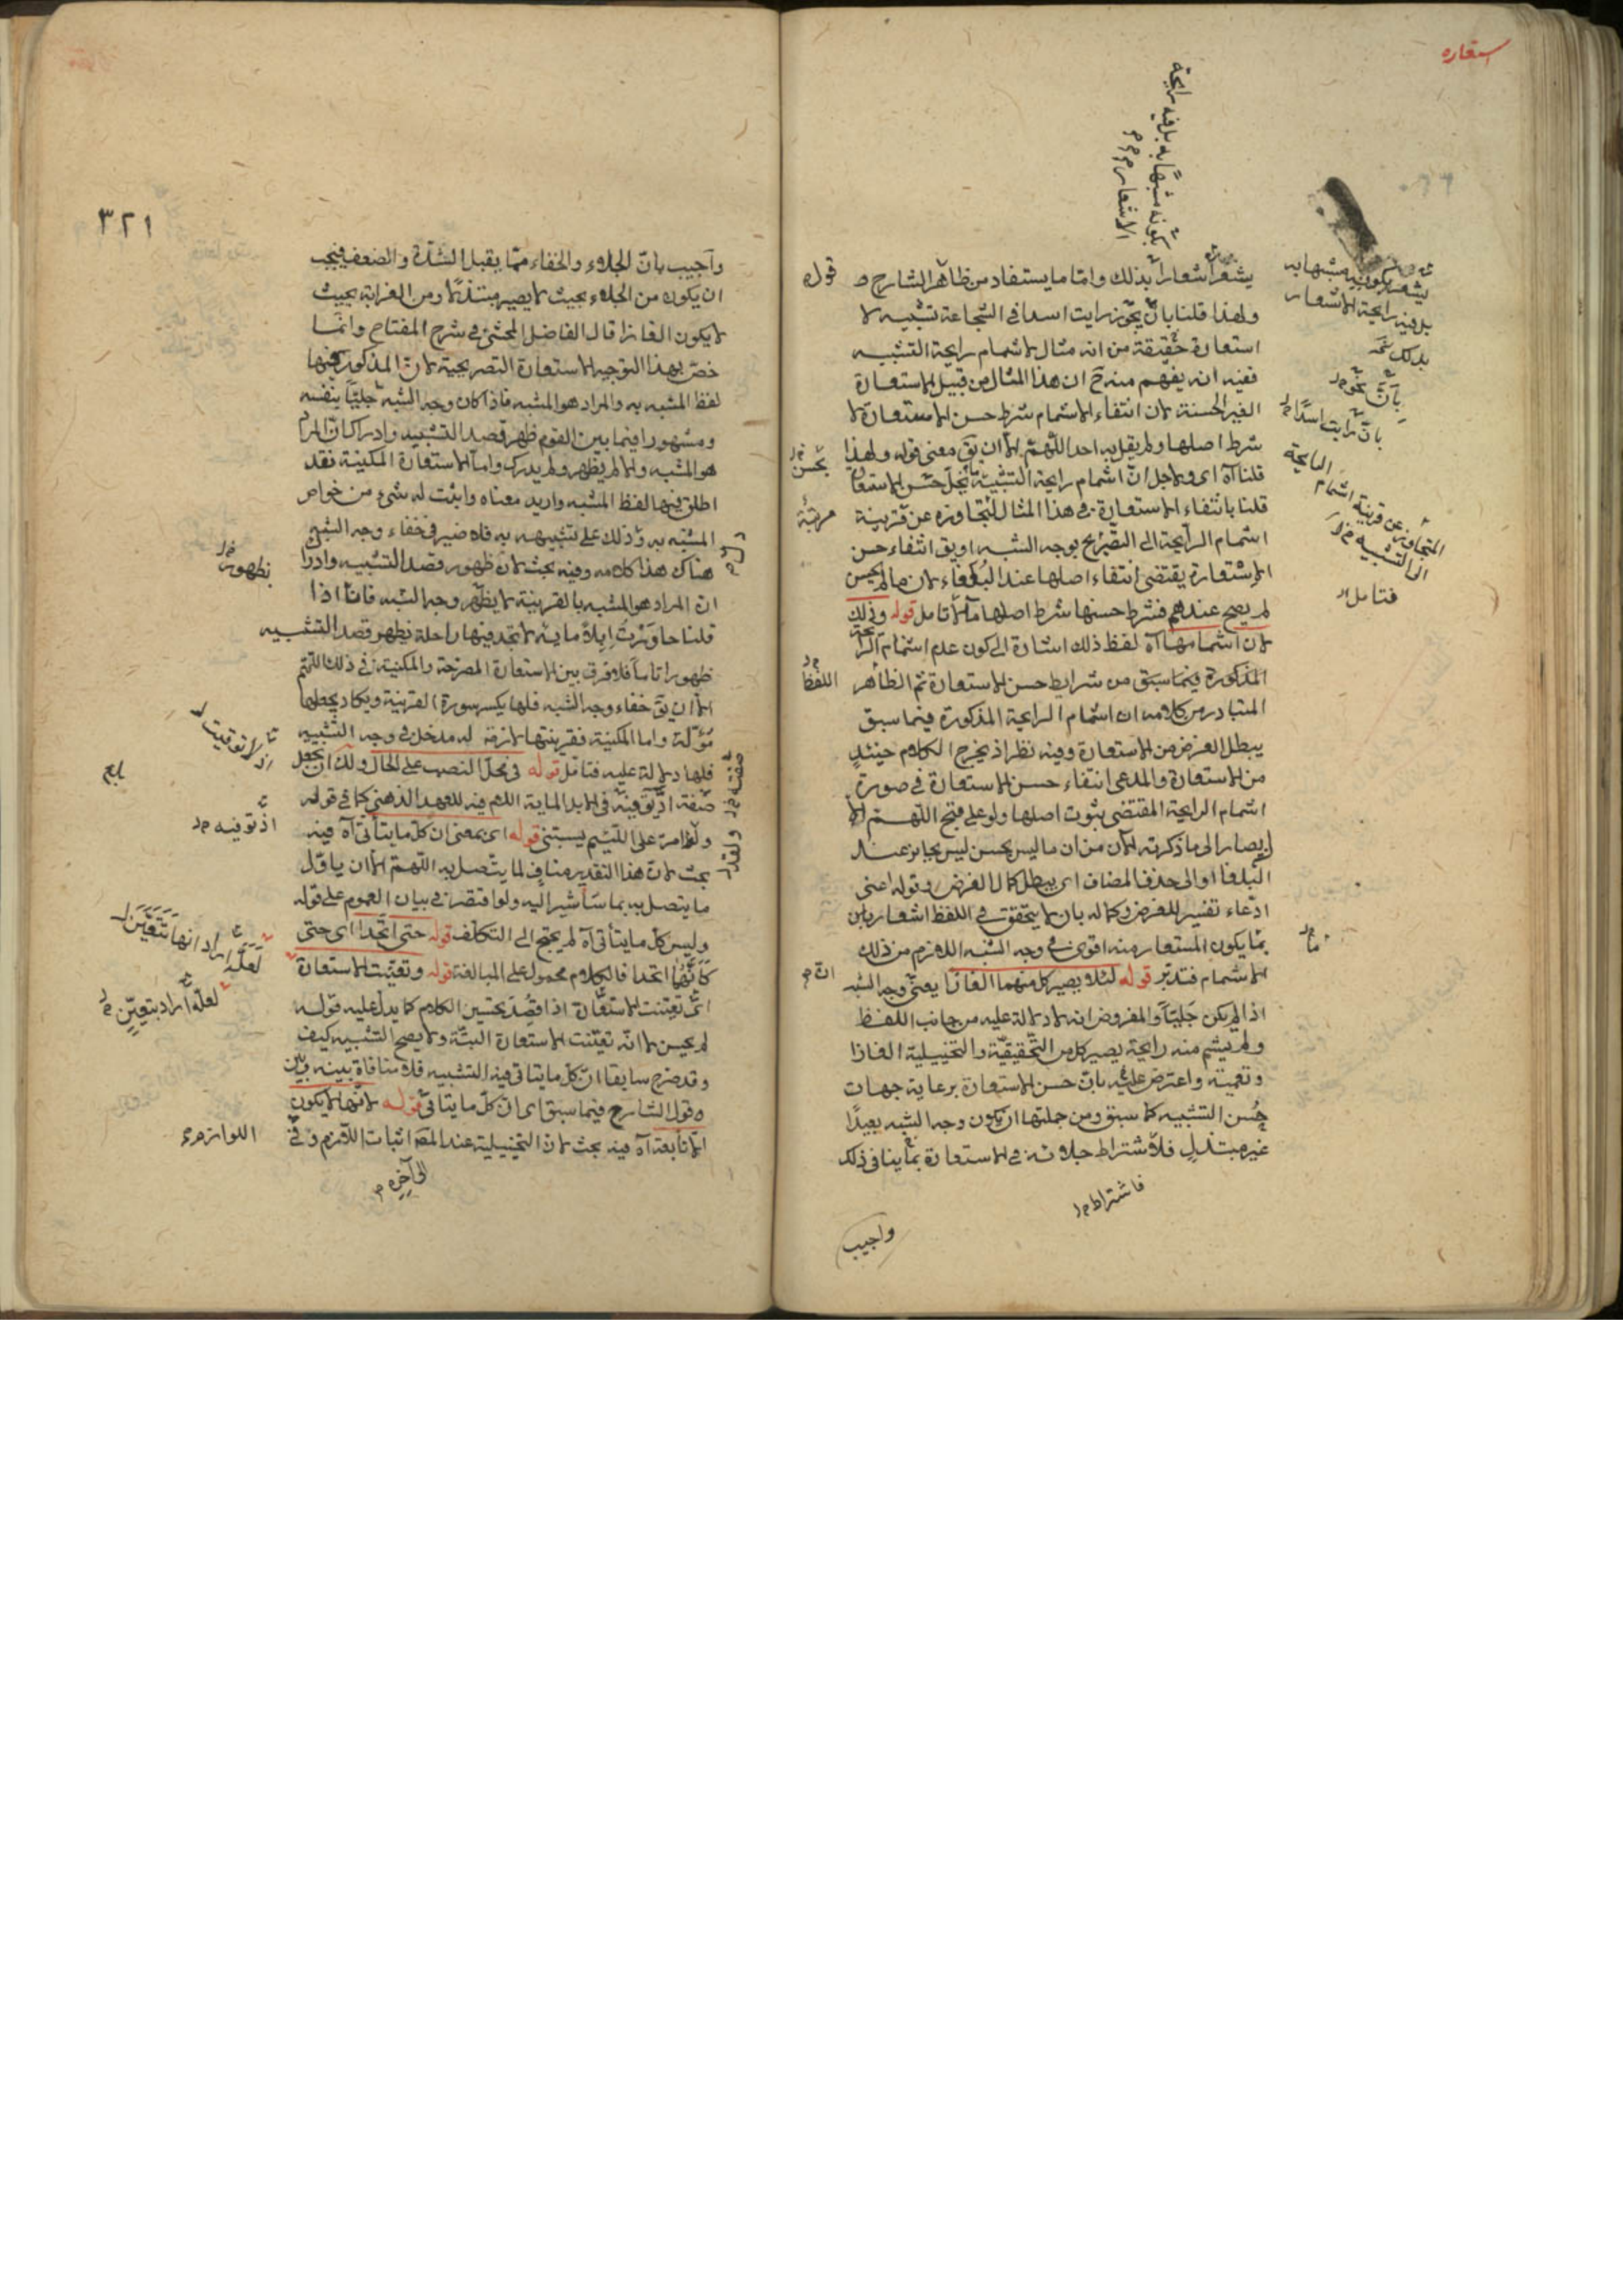 استعاره
بكونه مشبها به بل فيه رايحة
الاشعار
يشعر اشعارا بذلك واما ما يستفاد من ظاهر الشارح
ولهذا قلنا بان نحو رايت اسدا فى الشجاعة تشبيه لا
استعارة حقيقة من انه مثال لاشمام رايحة التشبيه
ففيه انه يفهم منه ح ان هذا المثال من قبيل الاستعارة
الغير الحسنة لان انتفاء الاشمام شرط حسن الاستعارة لا
شرط اصلها ولم يقل به احد اللهم الا ان يق معنى قوله ولهذا
قلنا آه اى ولاجل ان اشمام رايحة التشبيه يخل حسن الاستعا
قلنا بانتفاء الاستعارة فى هذا المثال لتجاوزه عن قرينة
اشمام الرايحة الى التصريح بوجه الشبه او يق انتفاء حسن
الاستعارة يقتضى انتفاء اصلها عند البلغاء لان ما لم يحسن
لم يصح عندهم فشرط حسنها شرط اصلها مآلا تامل قوله وذلك
لان اشمامها آه لفظ ذلك اشارة الى كون عدم اشمام الرايحة
المذكورة فيما سبق من شرايط حسن الاستعارة ثم الظاهر
المتبادر من كلامه ان اشمام الرايحة المذكورة فيما سبق
يبطل الغرض من الاستعارة وفيه نظر اذ يخرج الكلام حينئذ
من الاستعارة والمدعى انتفاء حسن الاستعارة فى صورة
اشمام الرايحة المقتضى بثبوت اصلها ولو على قبح اللهم الا
ان يصار الى ما ذكرته الان من ان ما ليس بحسن ليس بجايز عند
البلغا او الى حذف المضاف اى يبطل كمال الغرض وقوله اعنى
ادعاء تفسير للغرض وكماله بان لا يتحقق فى اللفظ اشعار بان
يكون المستعار منه اقوى فى وجه الشبه اللازم من ذلك
الاشمام فتدبر قوله لئلا يصير كل منهما الغازا يعنى وجه الشبه
اذا لم يكن جليا والمفروض انه لا دلالة عليه من جانب اللفظ
ولم يشم منه رايحة يصير كل من التحقيقية والتخييلية الغازا
وتعمية واعترض عليه بان حسن الاستعارة برعاية جهات
حسن التشبيه كما سبق ومن جملتها ان يكون وجه الشبه بعيدا
غير مبتذل فلاشتراط جلائه فى الاستعارة مما ينافى ذلك
فاشتراط
واجيب
قوله
يحسن
مرتبة
اللفظ
يشعر بكونه مشبها به
بل فيه رايحة الاشعار
بان نحو
بان رايت اسدا
المتجاوز عن قرينة اشمام الرايحة
الى التشبيه
فتامل
٣٢١
واجيب بان الجلاء والخفاء مما يقبل الشدة والضعف فيجب
ان يكون من الجلاء بحيث لا يصير مبتذلا ومن الغرابة بحيث
لا يكون الغازا قال الفاضل المحشى فى شرح المفتاح وانما
خص بهذا التوجيه الاستعارة التصريحية لان المذكور فيها
لفظ المشبه به والمراد هو المشبه فاذا كان وجه الشبه جليا بنفسه
ومشهورا فيما بين القوم ظهر قصد التشبيه وادراك ان المرا
هو المشبه والا لم يظهر ولم يدرك واما الاستعارة المكنية فقد
اطلق فيها لفظ المشبه واريد معناه واثبت له شئ من خواص
المشبه به وذلك على تشبيهه به فلا ضير فى خفاء وجه الشبه
هناك هذا كلامه وفيه بحث لان ظهور قصد التشبيه وادرا
ان المراد هو المشبه بالقرينة لا يظهر وجه الشبه فانا اذا
قلنا جاوزت ابلا مائة لا تجد فيها راحلة يظهر قصد التشبيه
ظهورا تاما فلا فرق بين الاستعارة المصرحة والمكنية فى ذلك اللهم
الا ان يق خفاء وجه الشبه فلها يكسر سورة القرينة ويكاد يجعلها
مؤلة واما المكنية فقرينتها لازمة له مدخل فى وجه التشبيه
فلها دلالة عليه فتامل قوله فى محل النصب على الحال ولك ان تجعل
صفة اذ توقيته فى الابل الماية اللام فيه للعهد الذهنى كما فى قوله
ولقد امر على اللئيم يسبنى قوله اى بمعنى ان كل ما يتاتى آه فيه
بحث لان هذا التقدير مناف لما يتصل به اللهم الا ان ياول
ما يتصل به بما سأشير اليه ولو اقتصر فى بيان العموم على قوله
وليس كل ما يتاتى آه لم يحتج الى التكلف قوله حتى اتحدا اى حتى
كانهما اتحدا فالكلام محمول على المبالغة قوله وتعينت الاستعارة
اى تعينت الاستعارة اذا قصد تحسين الكلام كما يدل عليه قوله
لم يحسن لا انه تعينت الاستعارة البتة ولا يصح التشبيه كيف
وقد صرح سابقا ان كل ما يتاتى فيه التشبيه فلا منافاة بينه وبين
قول الشارح فيما سبق اى ان كل ما يتاتى قوله لانها لا يكون
الا تابعة آه فيه بحث لان التخييلية عند المص اثبات اللازم وفى
الى آخره
بظهور
اذ توفيه
لعله اراد انها تتعين
لعله اراد بتعين
اللوازم
بلغ
ولقد